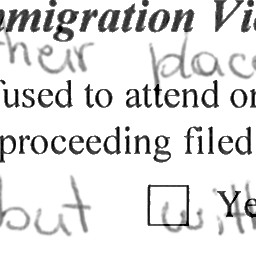 mmigration Vi
their place
fused to attend or
proceeding filed
but with Ye